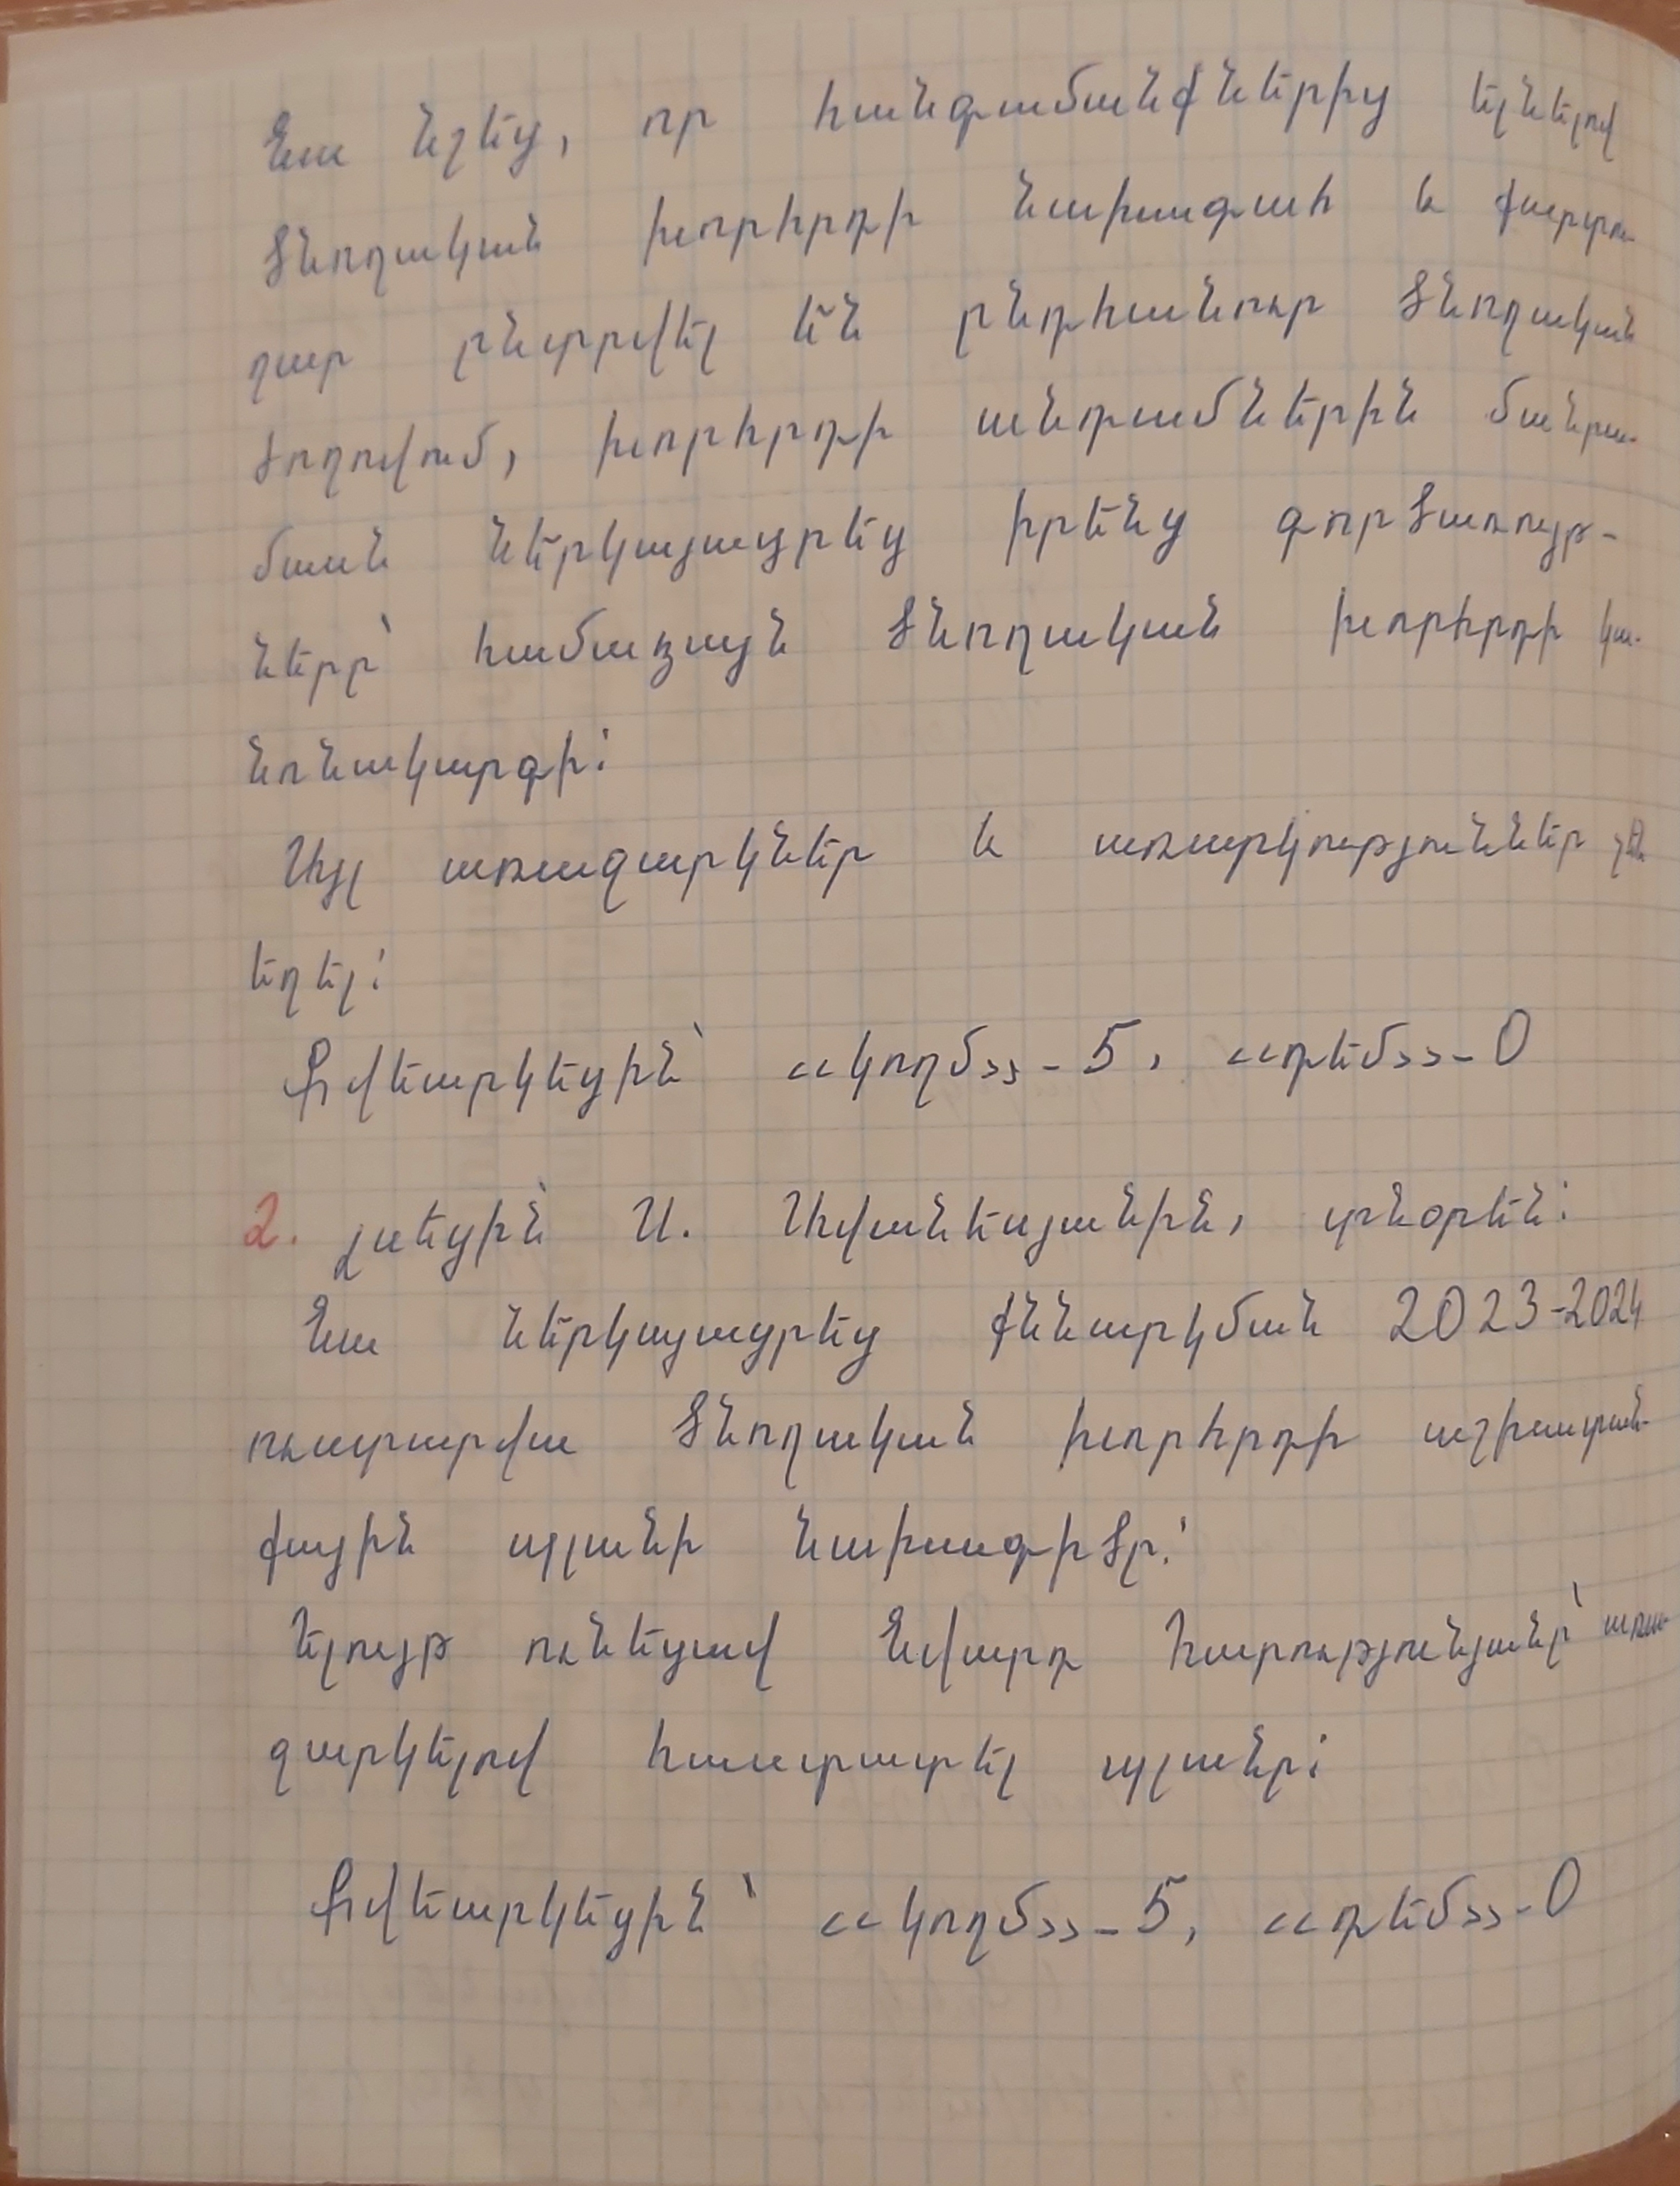 Նա նշեց, որ հանգամանքներից ելնելով
ծնողական խորհրդի նախագահ և քարտու-
ղար ընտրվել են ընդհանուր ծնողական
ժողովում, խորհրդի անդամներին մանրա-
մասն ներկայացրեց իրենց գործառույթ-
ները՝ համաձայն ծնողական խորհրդի կա-
նոնակարգի:
Այլ առաջարկներ և առարկություններ չեն
եղել:
Քվեարկեցին՝ <<կողմ>> - 5, <<դեմ>> - 0
2. Լսեցին՝ Ա. Ավանեսյանին, տնօրեն:
Նա ներկայացրեց քննարկման 2023-2024
ուստարվա ծնողական խորհրդի աշխատան-
քային պլանի նախագիծը:
Ելույթ ունեցավ Նվարդ Հարությունյանը՝ առա-
ջարկելով հաստատել պլանը:
Քվեարկեցին՝ <<կողմ>> - 5, <<դեմ>> - 0